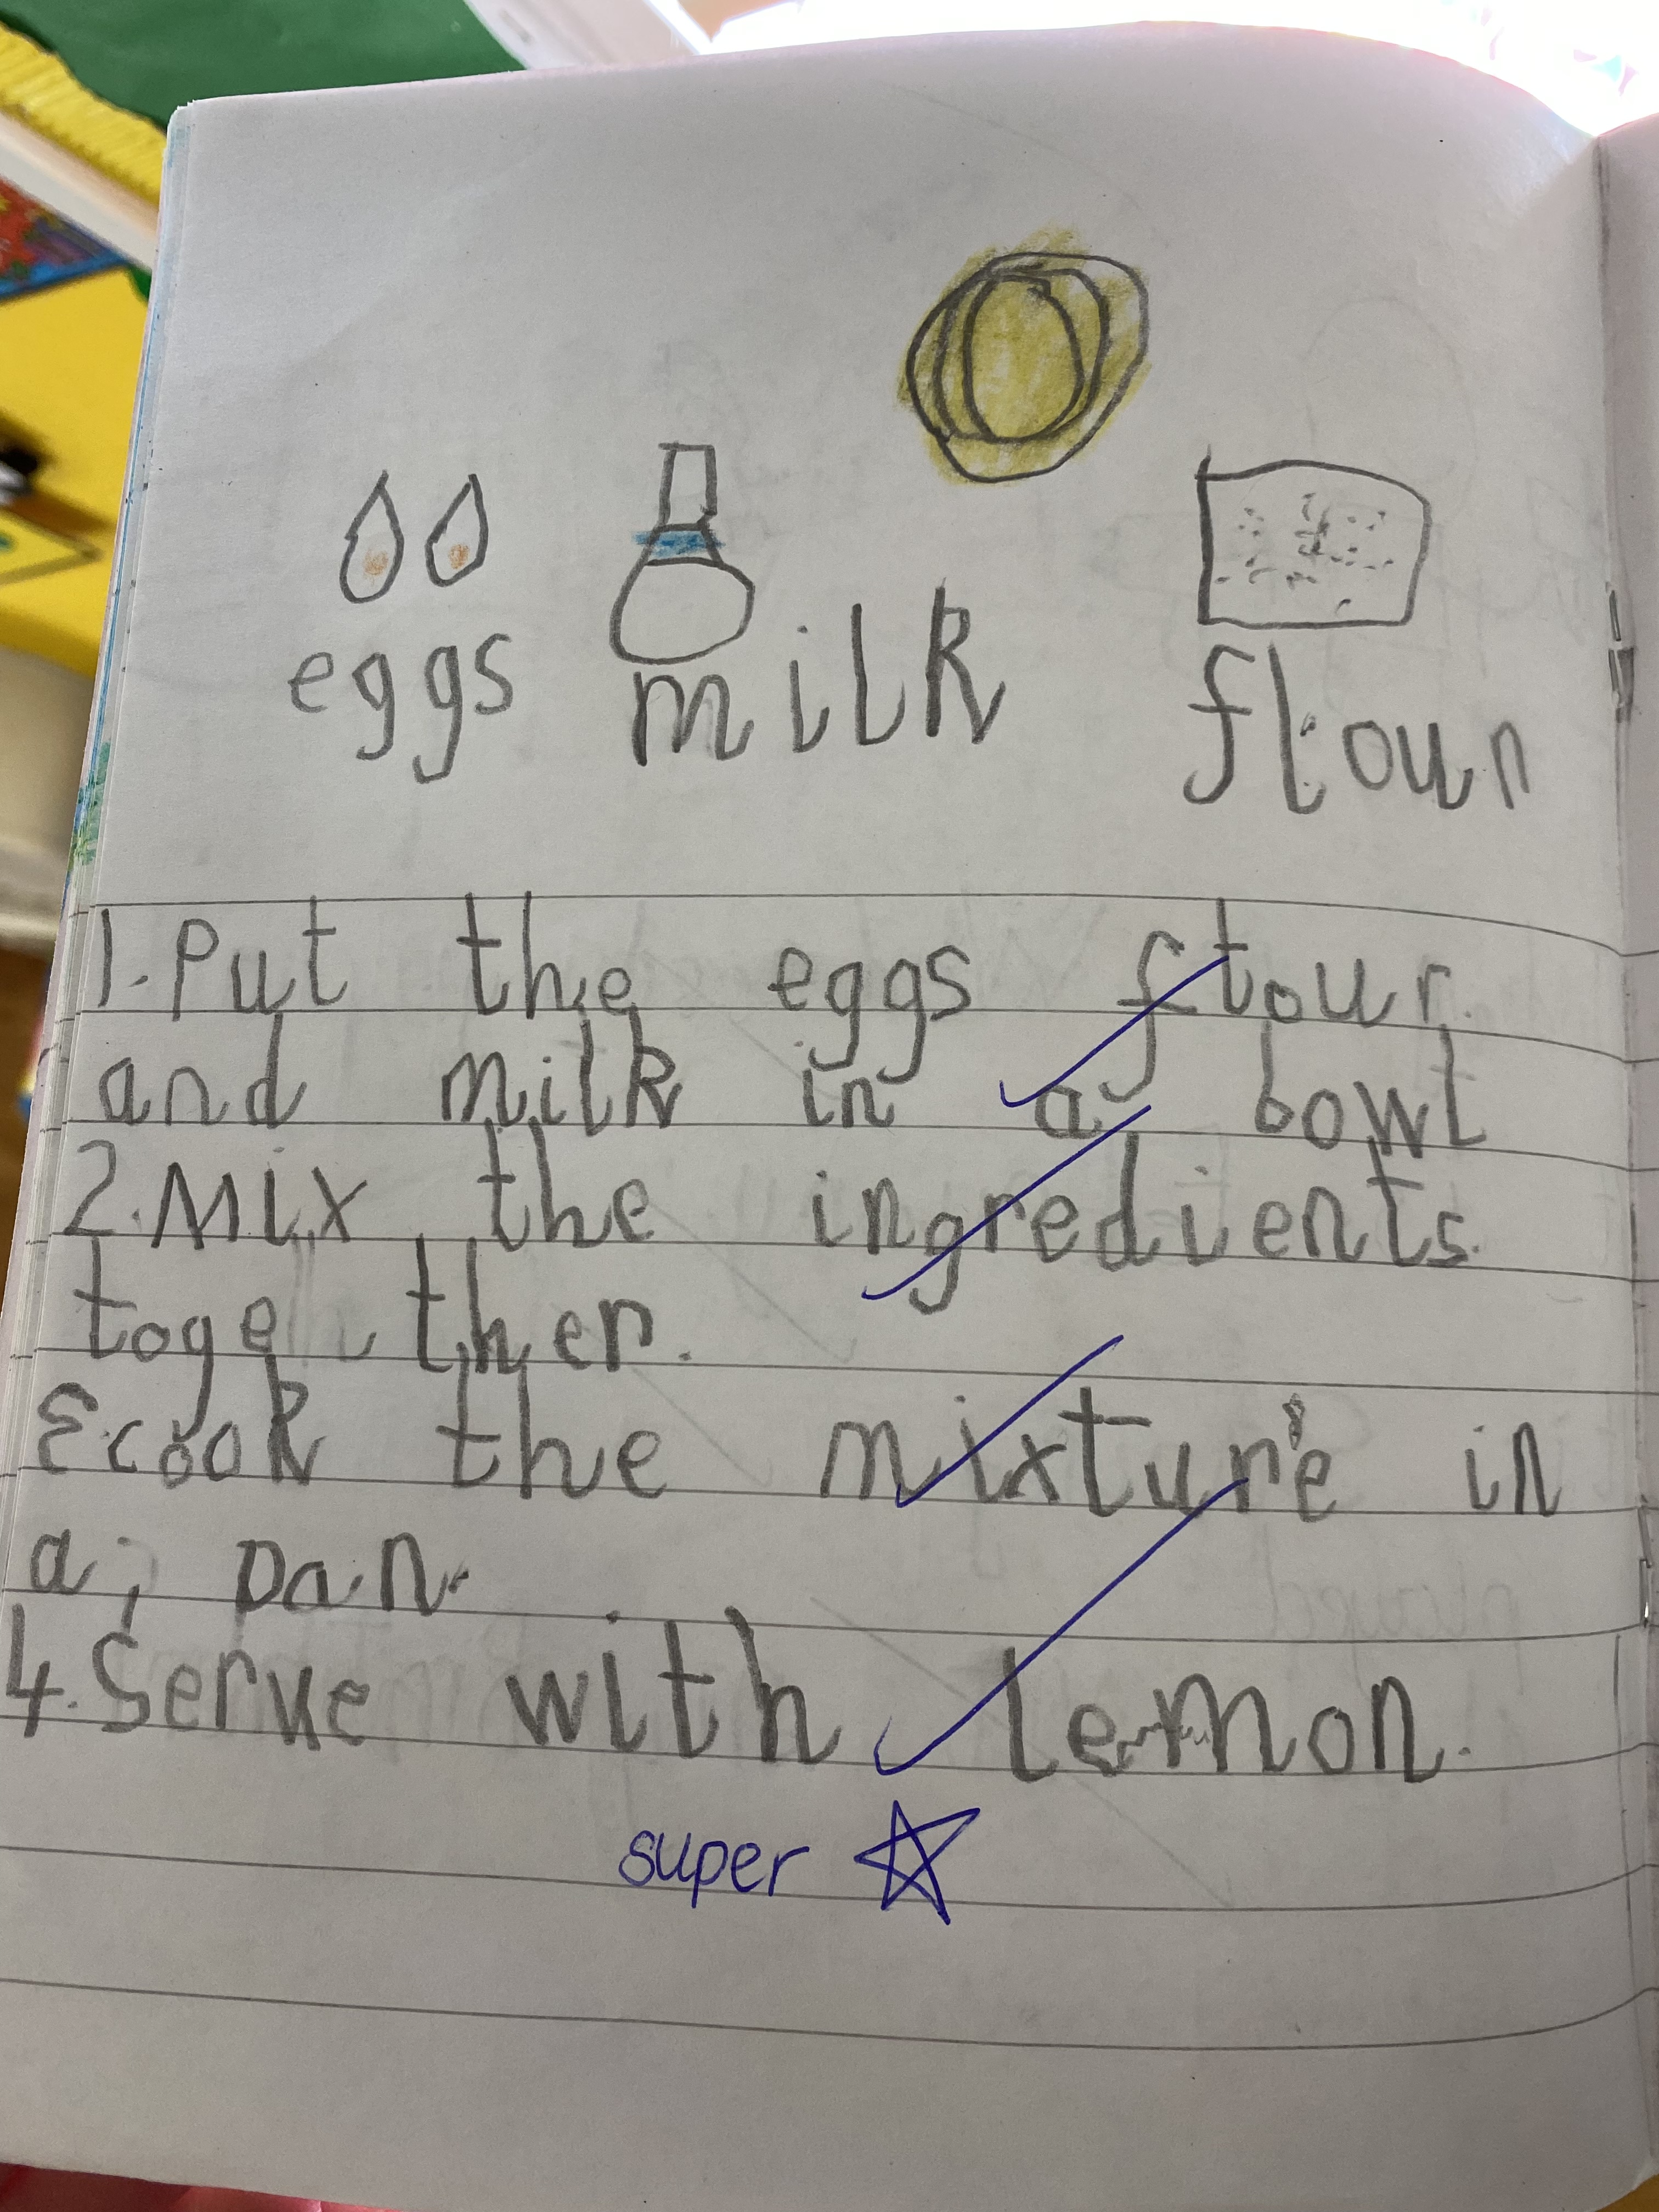 eggs milk flour
1. Put the eggs flour
and milk in a bowl
2. Mix the ingredients
together.
3 cook the mixture in
a pan.
4. Serve with lemon.
super